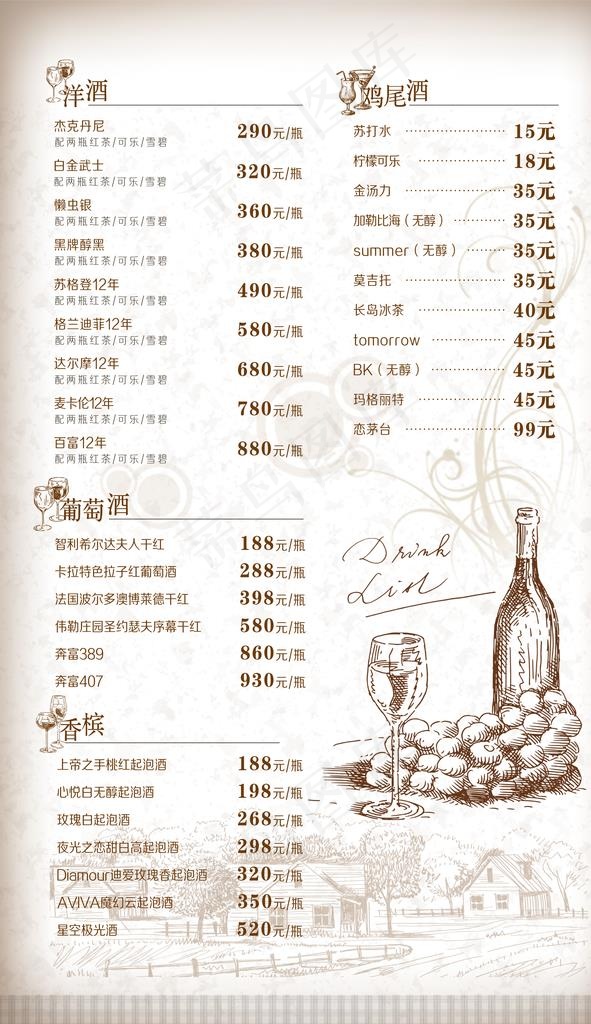 洋酒
杰克丹尼 290元/瓶
配两瓶红茶/可乐/雪碧
白金武士 320元/瓶
配两瓶红茶/可乐/雪碧
懒虫银 360元/瓶
配两瓶红茶/可乐/雪碧
黑牌醇黑 380元/瓶
配两瓶红茶/可乐/雪碧
苏格登12年 490元/瓶
配两瓶红茶/可乐/雪碧
格兰迪菲12年 580元/瓶
配两瓶红茶/可乐/雪碧
达尔摩12年 680元/瓶
配两瓶红茶/可乐/雪碧
麦卡伦12年 780元/瓶
配两瓶红茶/可乐/雪碧
百富12年 880元/瓶
配两瓶红茶/可乐/雪碧
葡萄酒
智利希尔达夫人干红 188元/瓶
卡拉特色拉子红葡萄酒 288元/瓶
法国波尔多澳博莱德干红 398元/瓶
伟勒庄园圣约瑟夫序幕干红 580元/瓶
奔富389 860元/瓶
奔富407 930元/瓶
香槟
上帝之手桃红起泡酒 188元/瓶
心悦白无醇起泡酒 198元/瓶
玫瑰白起泡酒 268元/瓶
夜光之恋甜白高起泡酒 298元/瓶
Diamour迪爱玫瑰香起泡酒 320元/瓶
AVIVA魔幻云起泡酒 350元/瓶
星空极光酒 520元/瓶
鸡尾酒
苏打水 15元
柠檬可乐 18元
金汤力 35元
加勒比海（无醇） 35元
summer（无醇） 35元
莫吉托 35元
长岛冰茶 40元
tomorrow 45元
BK（无醇） 45元
玛格丽特 45元
恋茅台 99元
Drink
List